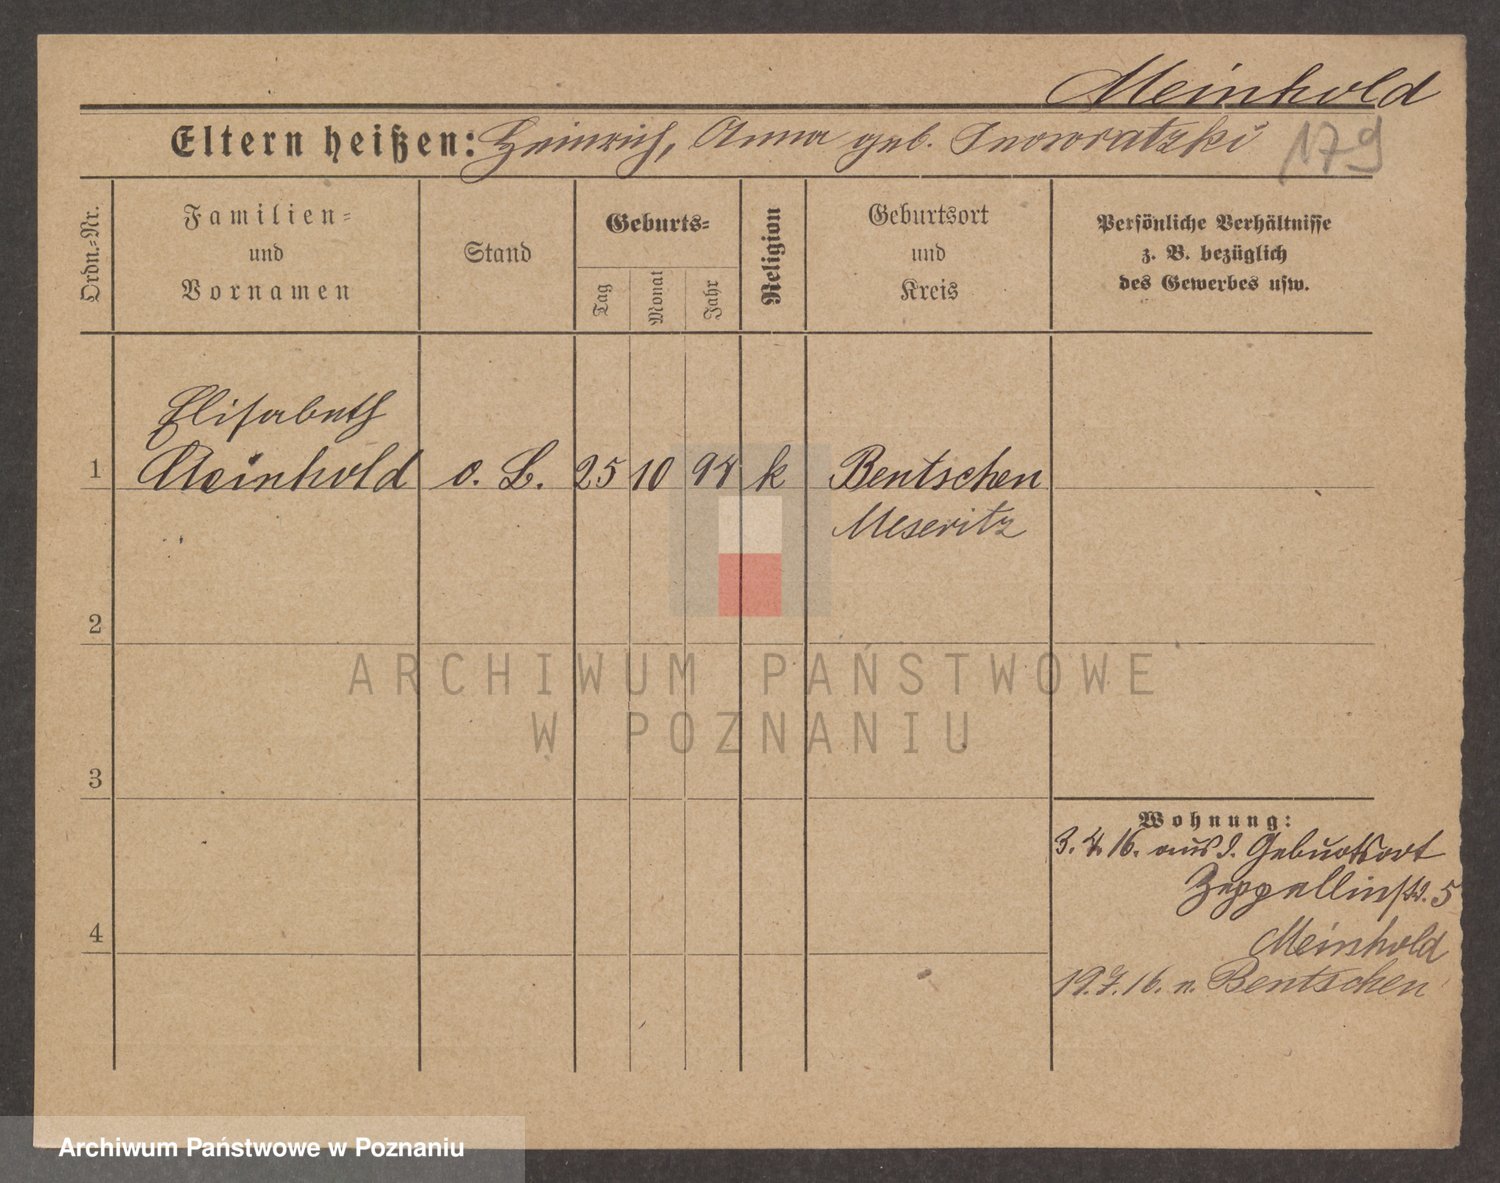 Meinhold
Eltern heißen: Heinrich, Anna geb. Snowratzki
179
Ordn.=Nr.
Familien=
und
Vornamen
Stand
Geburts=
Tag
Monat
Jahr
Religion
Geburtsort
und
Kreis
Persönliche Verhältnisse
z. B. bezüglich
des Gewerbes usw.
Elisabeth
1 Meinhold o. B. 25 10 98 k Bentschen
Meseritz
2
ARCHIWUM PAŃSTWOWE
W POZNANIU
3
Wohnung:
3. 4. 16. aus d. Geburtsort
Zeppellinstr. 5
4
Meinhold
19.7.16. n. Bentschen
Archiwum Państwowe w Poznaniu